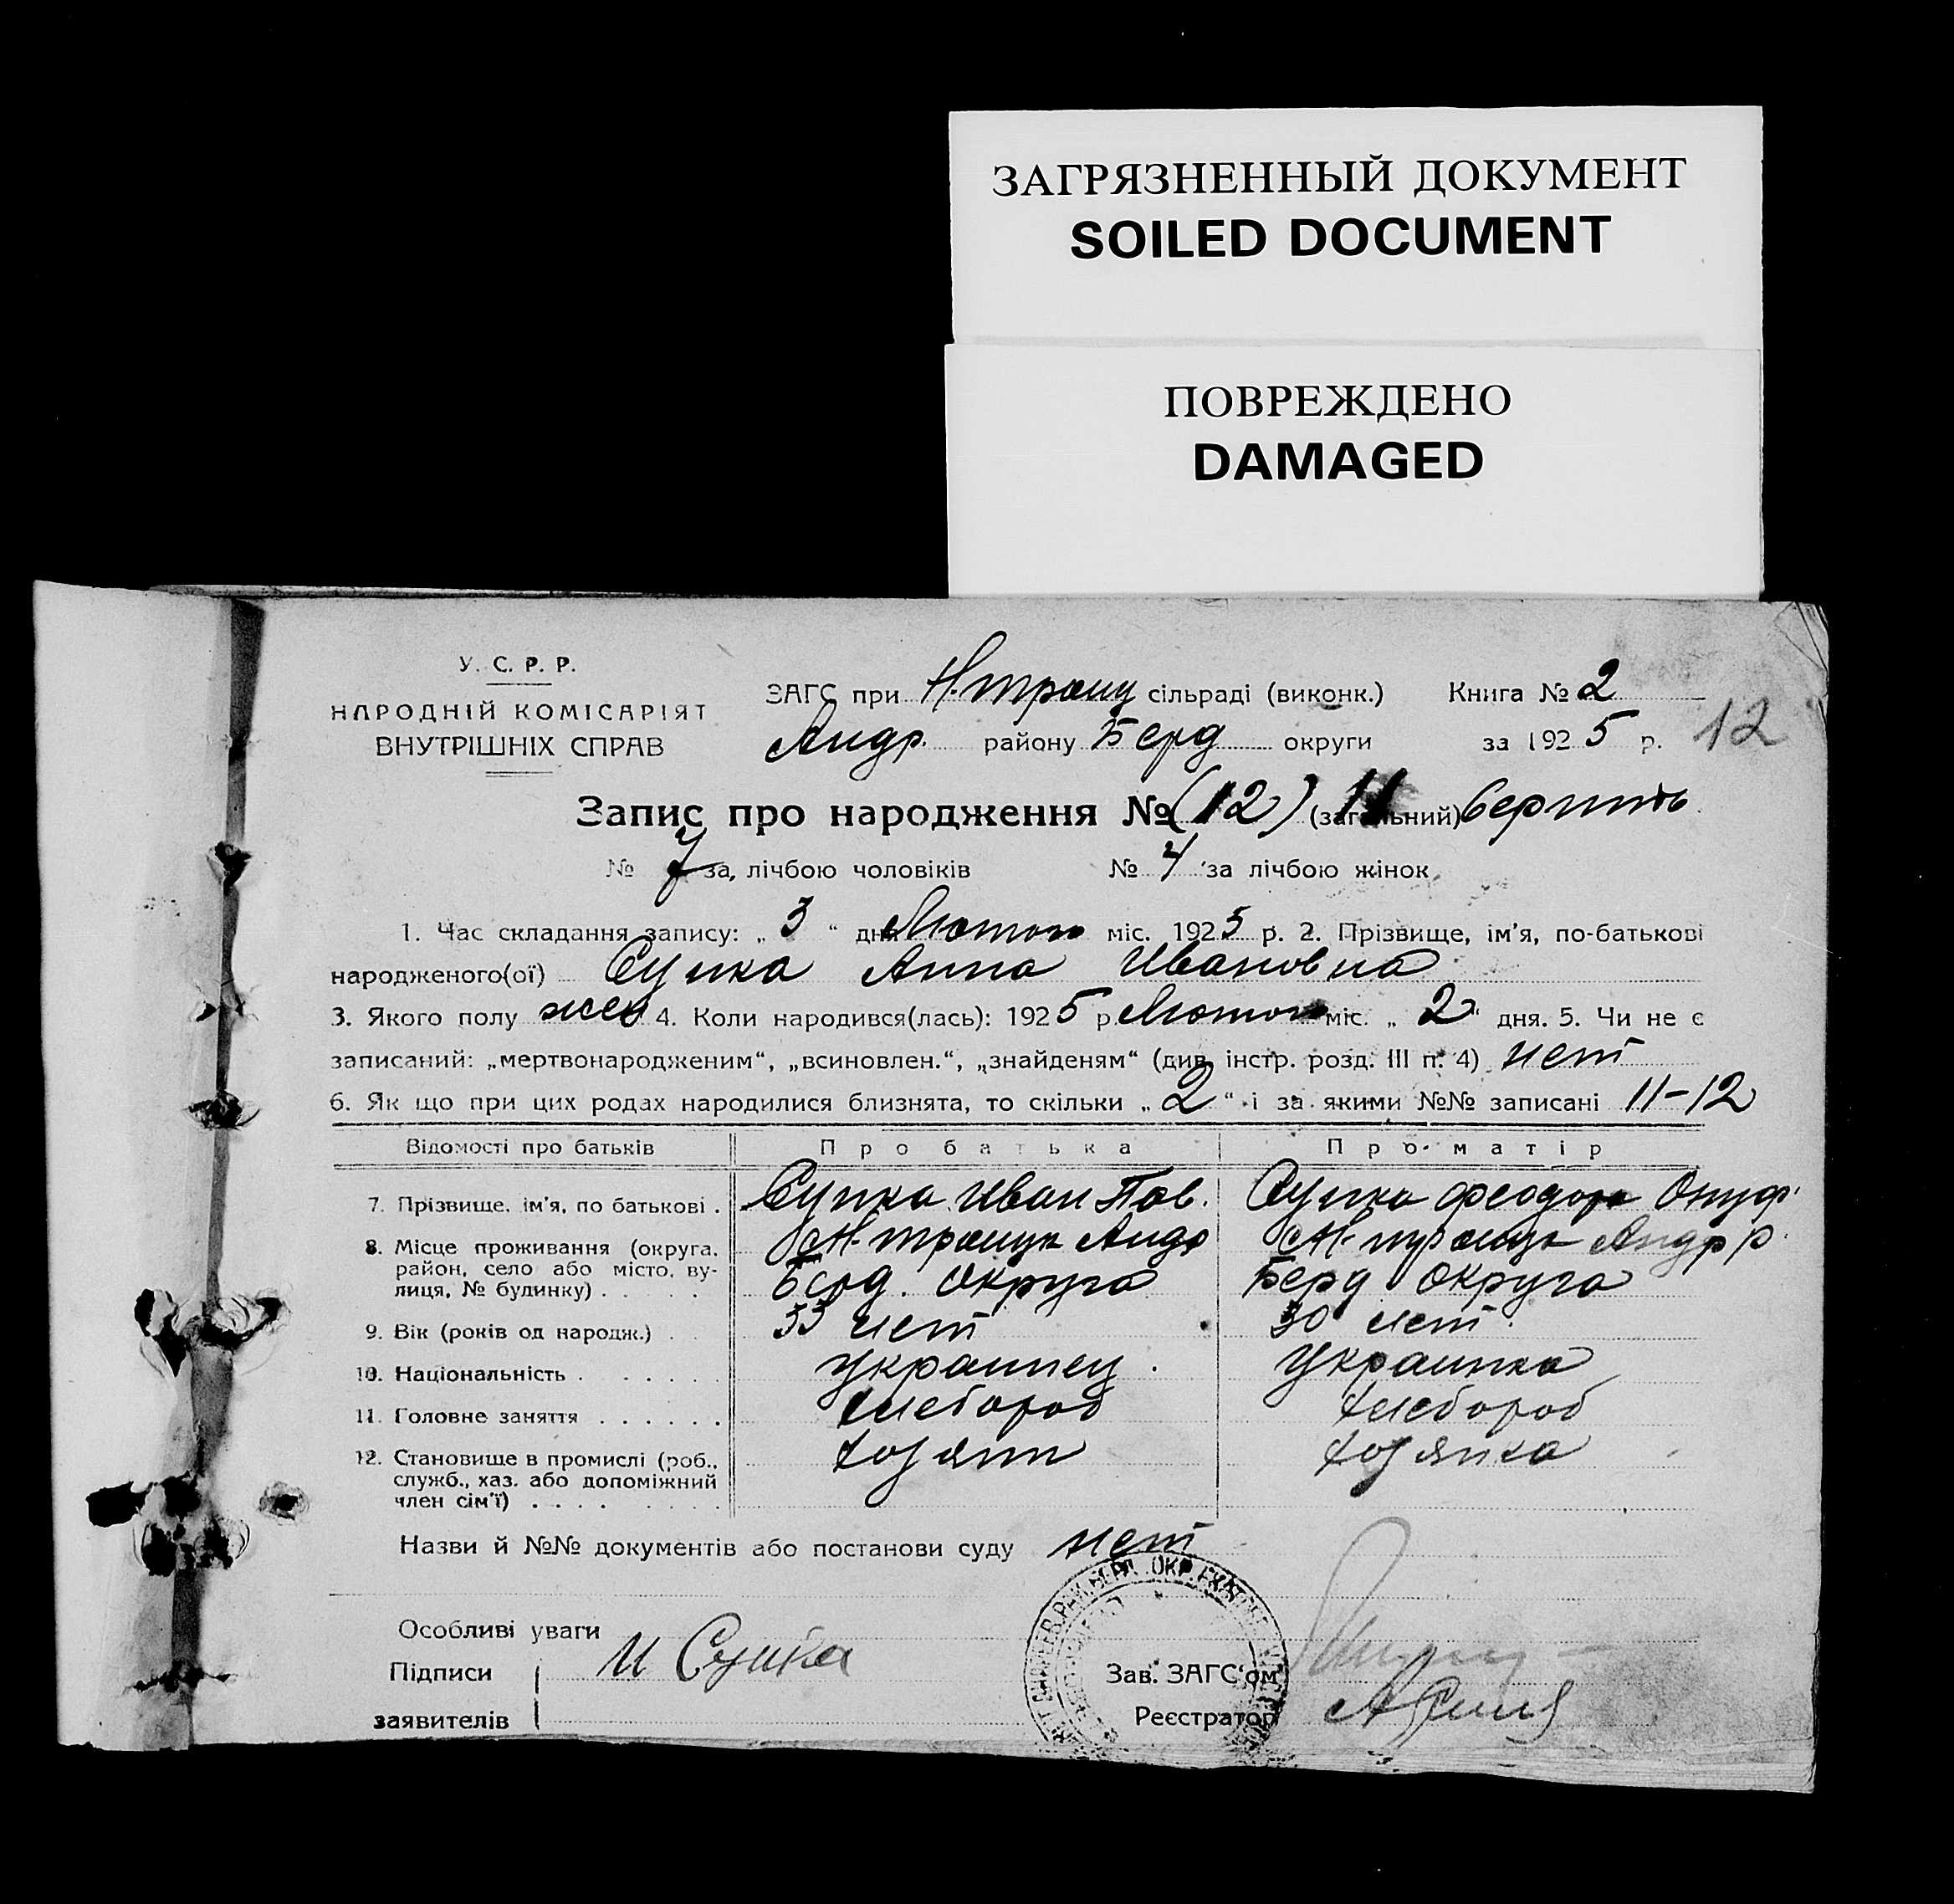 ЗАГРЯЗНЕННЫЙ ДОКУМЕНТ
SOILED DOCUMENT
ПОВРЕЖДЕНО
DAMAGED
У. С. Р. Р.
НАРОДНІЙ КОМІСАРІЯТ
ВНУТРІШНІХ СПРАВ
ЗАГС при Н. троиц сільраді (виконк.) Книга № 2
Андр. району Берд округи за 1925 р. 12
Запис про народження № (12) 11 (загальний)
№ 7 за лічбою чоловіків № 4 за лічбою жінок
1. Час складання запису: „ 3 “ дня Лютого міс. 1925 р. 2. Прізвище, ім'я, по-батькові
народженого(ої) Супка Анна Ивановна
3. Якого полу жен 4. Коли народився(лась): 1925 р. Лютого міс. „ 2 “ дня. 5. Чи не є
записаний: „мертвонародженим“, „всиновлен.“, „знайденям“ (див. інстр. розд. III п. 4) нет
6. Як що при цих родах народилися близнята, то скільки „ 2 “ і за якими №№ записані 11-12
Відомості про батьків Про батька Про матір
7. Прізвище, ім'я, по батькові . Супка Иван Пав. Супка Феодора Онуф.
8. Місце проживання (округа, район, село або місто, вулиця, № будинку) . Н. троицк Андр Н. троицк Андр р.
Берд. округа Берд округа
9. Вік (років од народж.) . 33 лет 30 лет
10. Національність . украинец украинка
11. Головне заняття . хлебороб хлебороб
12. Становище в промислі (роб., служб., хаз. або допоміжний член сім'ї) . хозяин хозяйка
Назви й №№ документів або постанови суду нет
Особливі уваги
Підписи И Супка Зав. ЗАГС'ом
заявителів Реєстратор